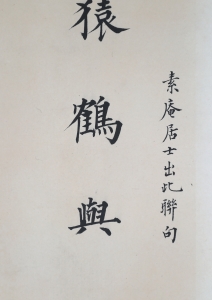 素庵居士出此聯句
猿鶴與